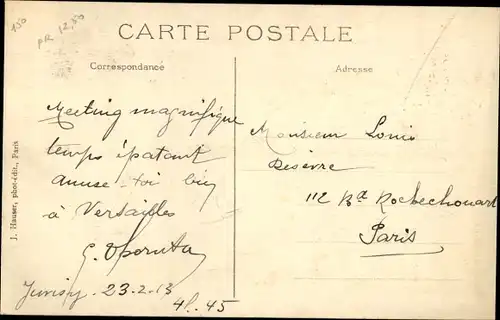 130
PR 12,50
CARTE POSTALE
Correspondance
Adresse
Meeting magnifique
temps épatant
amuse-toi bien
à Versailles
Juvisy 23-2-13
4h.45
Monsieur Louis
112 Bd Rochechouart
Paris
J. Hauser, phot.-édit., Paris